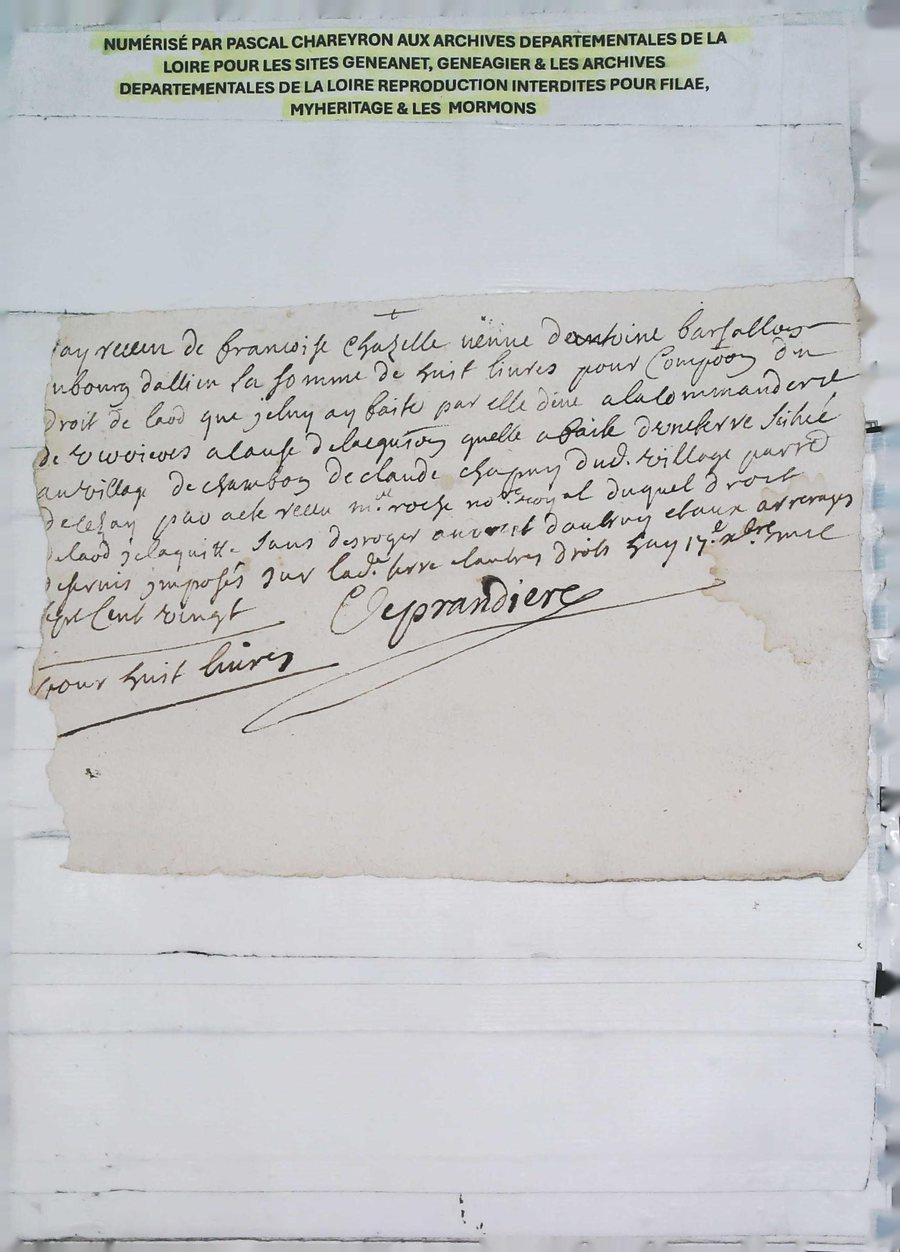 NUMÉRISÉ PAR PASCAL CHAREYRON AUX ARCHIVES DEPARTEMENTALES DE LA
LOIRE POUR LES SITES GENEANET, GENEAGIER & LES ARCHIVES
DEPARTEMENTALES DE LA LOIRE REPRODUCTION INTERDITES POUR FILAE,
MYHERITAGE & LES MORMONS
jay receu de francoise Chazelle veuve dantoine
dallieu la somme de huit livres pour Compoon du
droit de laod que jeluy ay faite par elle deue ala Commanderie
de a cause delaequion quelle a faite dune terre située
au village de chambon de claude dud. village parre
de par acte receu me. roche nore. royal duquel droit
de laod je laquitte sans desroger au droit dautruy et aux arrerages
de servis jmposés sur lade. terre et autres droits huy 17e. xbre mil
sept Cent vingt
Deprandiere
pour huit livres